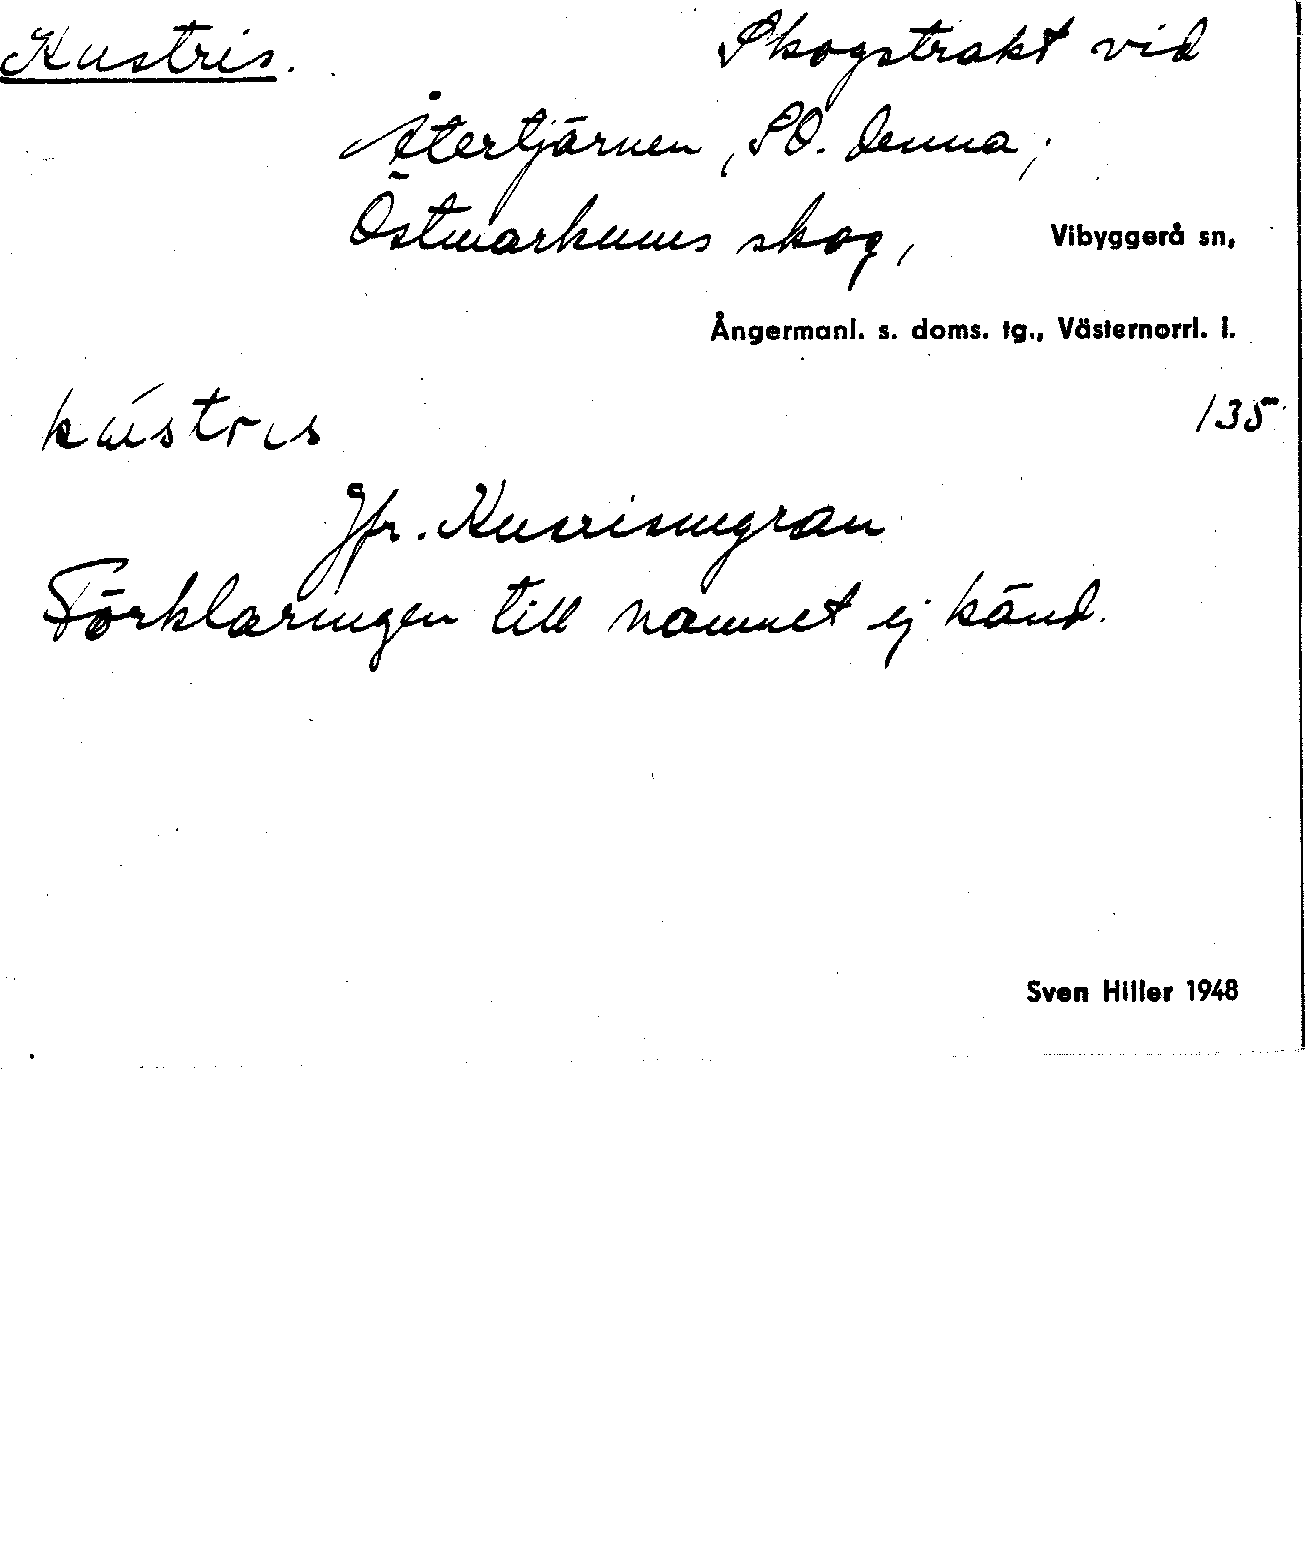 Kustris. Skogstrakt vid
Återtjärnen, SO. denna;
Östmarkums skog, Vibyggerå sn,
Ångermanl. s. doms. tg., Västernorrl. l.
kústris 135
Jfr.
Förklaringen till namnet ej känd.
Sven Hiller 1948